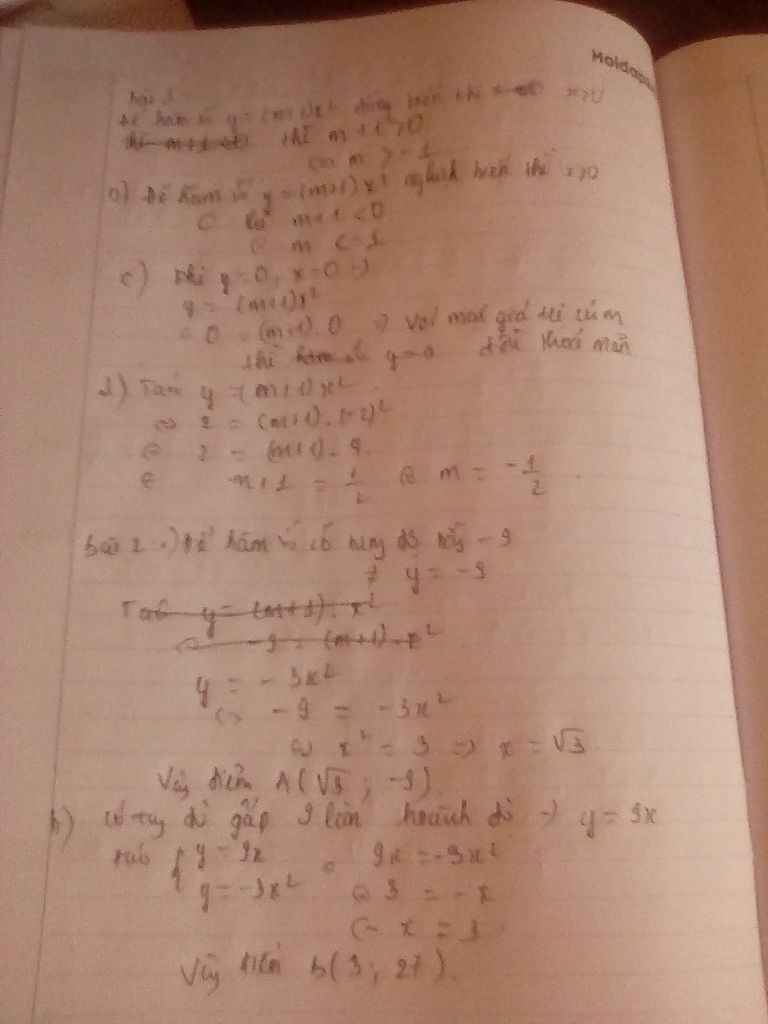 Moldapa
Bài 1
để hàm số y = (m+1)x² đồng biến thì x>0
thì m+1>0
⇔ m > -1
để hàm số y = (m+1)x² nghịch biến thì x>0
m+1 < 0
m < -1
c) khi y=0, x=0 ⇒
y = (m+1)x²
0 = (m+1).0 ⇒ Với mọi giá trị của m
thì hàm số y=0 đều thoả mãn
d) Ta có y = (m+1)x²
⇔ 2 = (m+1).(-2)²
⇔ 2 = (m+1).4
⇔ m+1 = 1/2 ⇔ m = -1/2
Bài 2 a) để hàm số có tung độ bằng -9
⇒ y = -9
Ta có y = (m+1).x²
⇔ -9 = (m+1).x²
y = -3x²
⇔ -9 = -3x²
⇔ x² = 3 ⇒ x = √3
Vậy điểm A(√3; -9)
b) có tung độ gấp 9 lần hoành độ ⇒ y = 9x
ta có { y = 9x 9x = -3x²
y = -3x² ⇔ 3 = -x
⇔ x = 3
Vậy điểm B(3; 27).